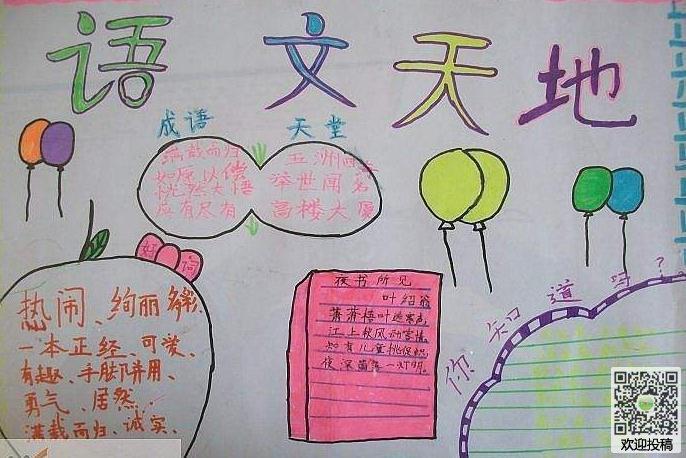 语文天地
成语 天堂
满载而归
如愿以偿
恍然大悟
应有尽有
五洲四海
举世闻名
高楼大厦
好词
热闹、绚丽
一本正经、可爱、
有趣、手脚并用、
勇气、居然、
满载而归、诚实、
夜书所见
叶绍翁
萧萧梧叶送寒声,
江上秋风动客情。
知有儿童挑促织,
夜深篱落一灯明。
你知道吗?
欢迎投稿